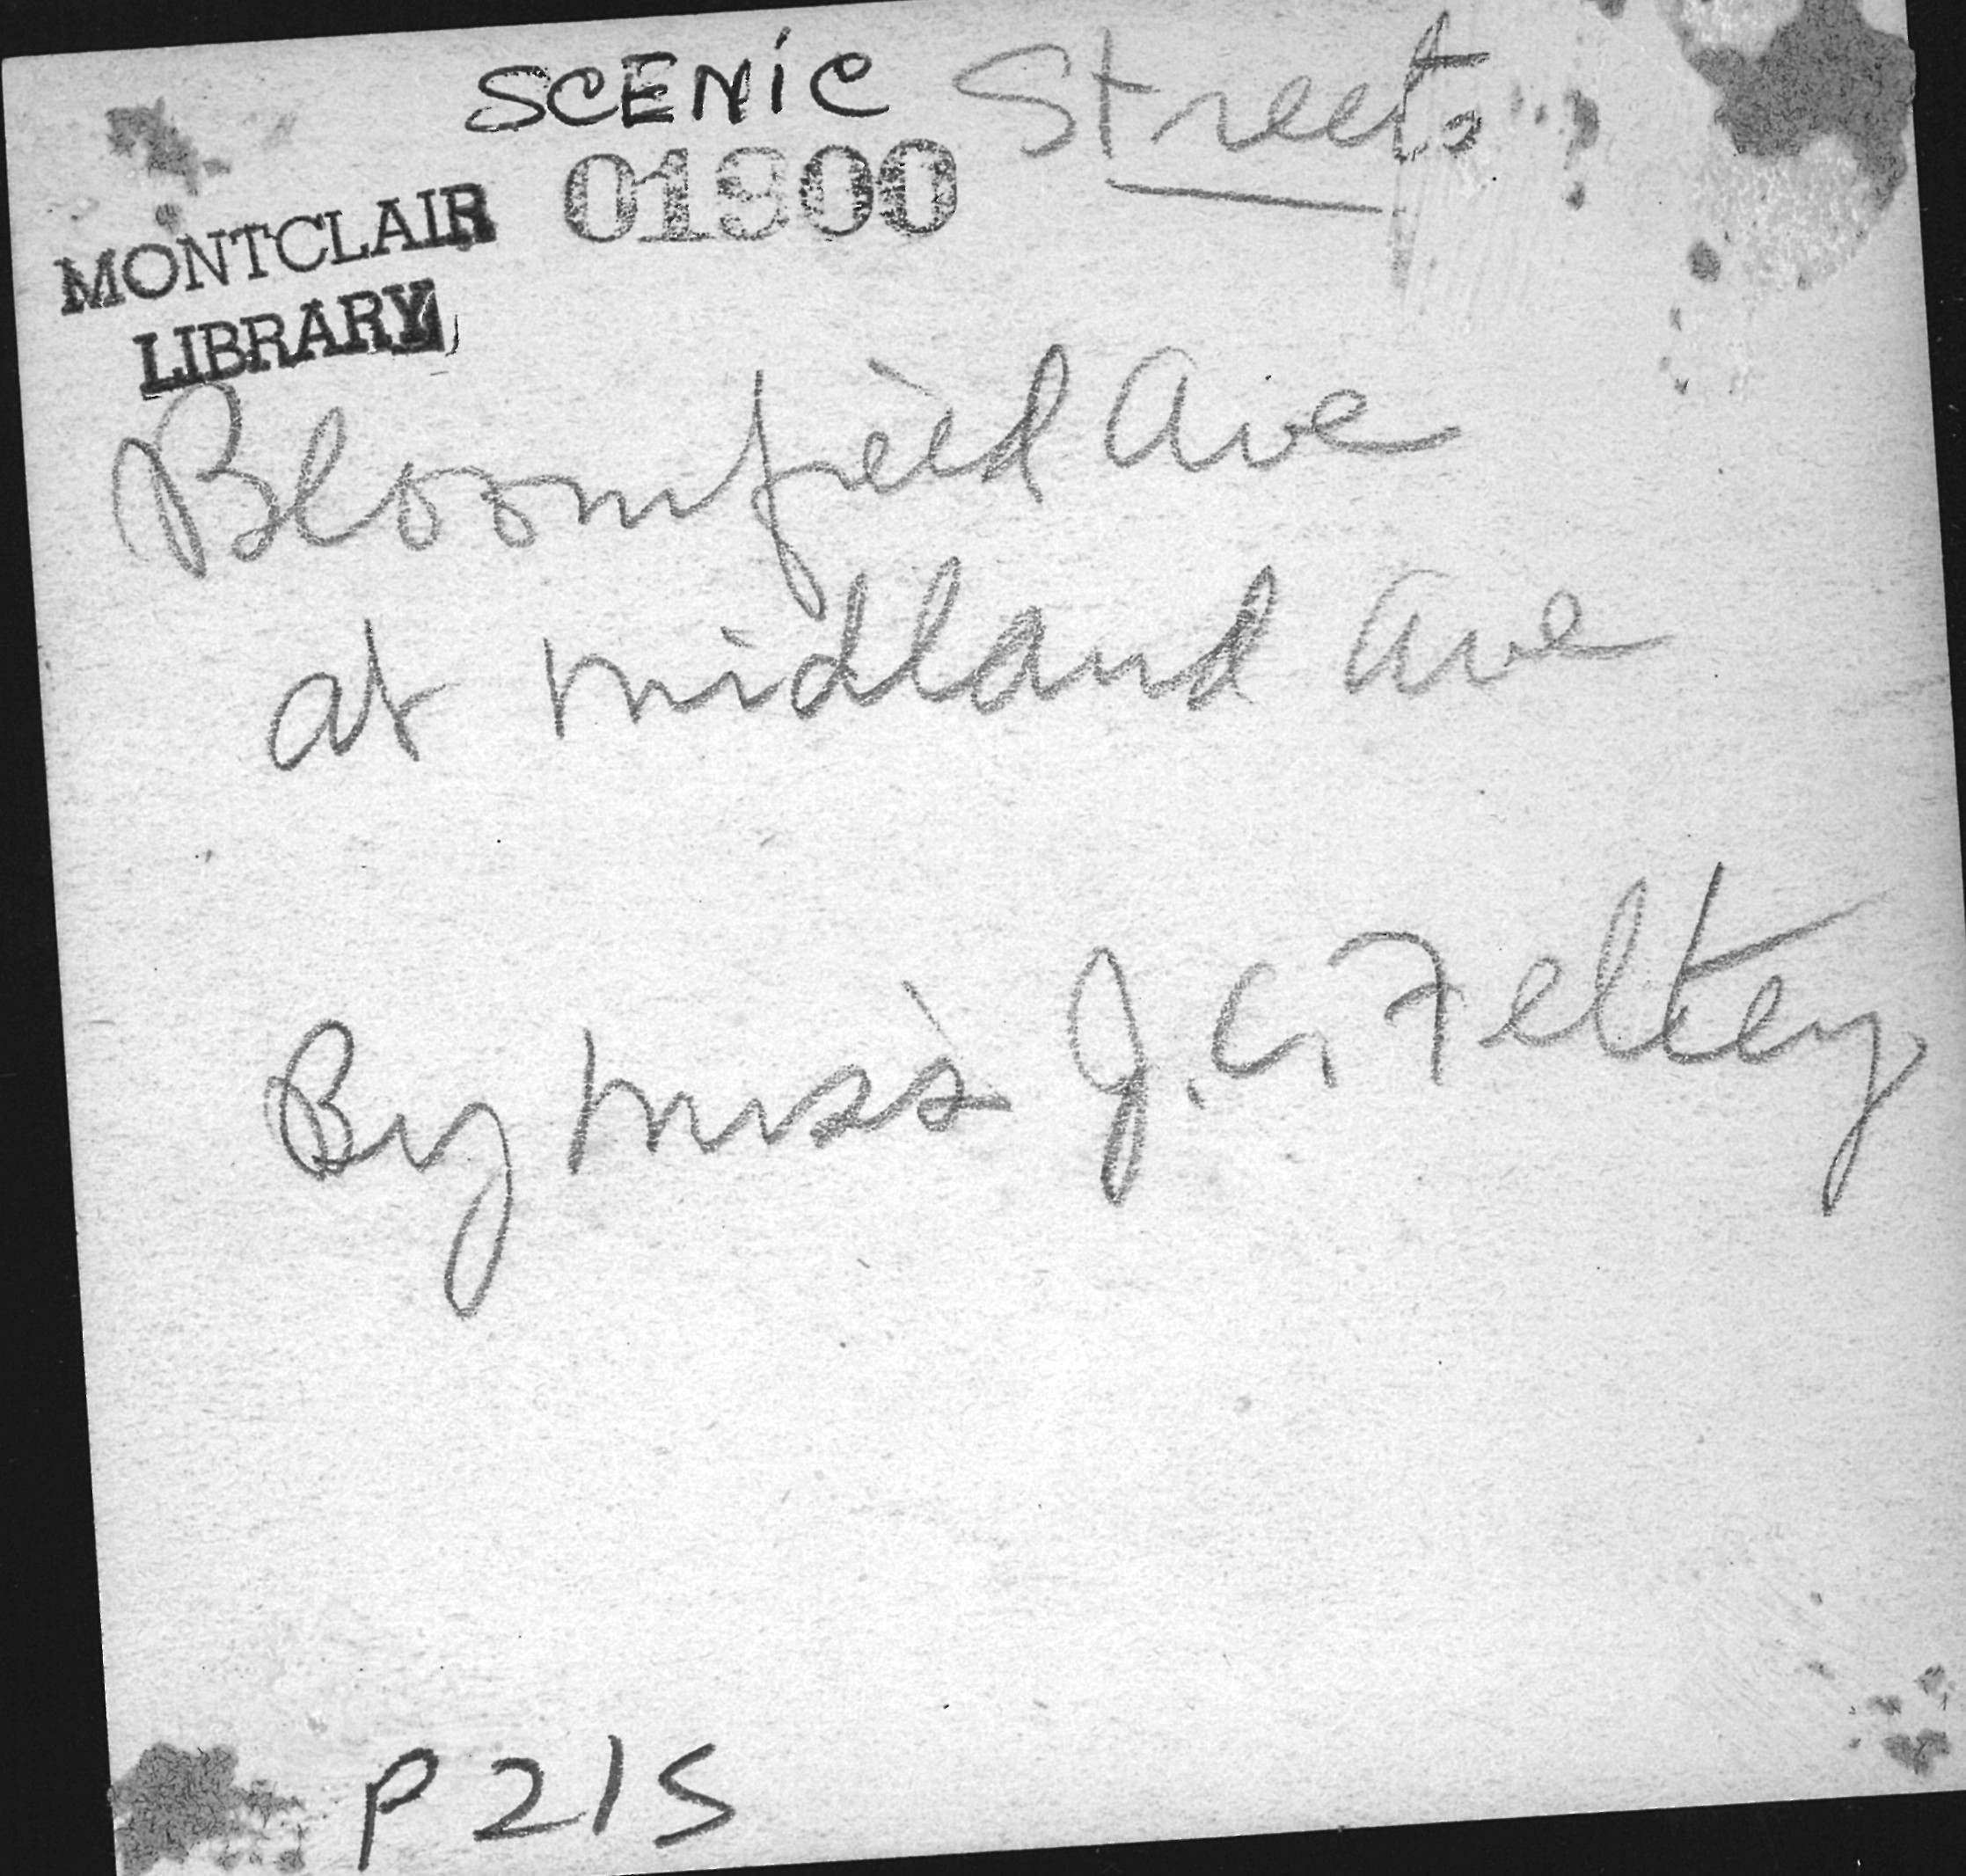 SCENIC Streets
01900
MONTCLAIR
LIBRARY
Bloomfield Ave
at Midland Ave
By Miss J. G. Feltey
P 215